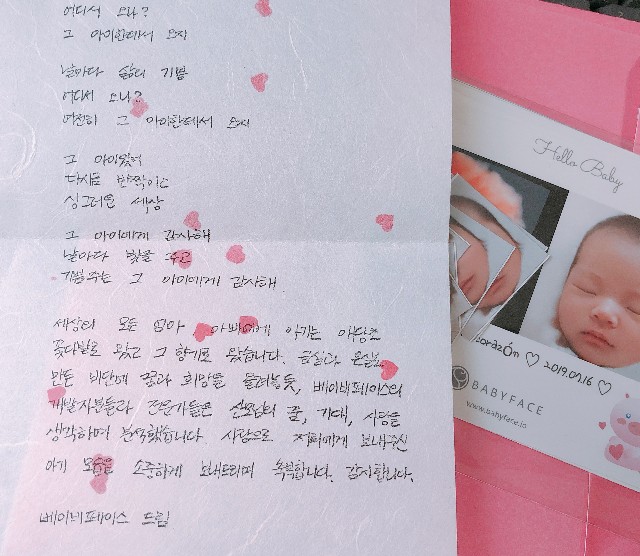 어디서 오나?
그 아이한테서 오지
날마다 삶의 기쁨
어디서 오나?
여전히 그 아이한테서 오지
그 아이있어
다시금 반짝이는
싱그러운 세상
그 아이에게 감사해
날마다 빛을 주고
기쁨 주는 그 아이에게 감사해
세상의 모든 엄마 아빠에게 아기는 아름다운
꽃다발로 왔고 그 향기로 왔습니다. 금실과 은실로
만든 비단에 꿈과 희망을 들려놓듯, 베이비페이스의
개발자분들과 전문가들은 산모님의 꿈, 기대, 사랑을
생각하며 분석했습니다. 사랑으로 저희에게 보내주신
아기 모습을 소중하게 보내드리며 축복합니다. 감사합니다.
베이비페이스 드림
Hello Baby
corazón ♡ 2019.07.16 ♡
BABYFACE
www.babyface.io